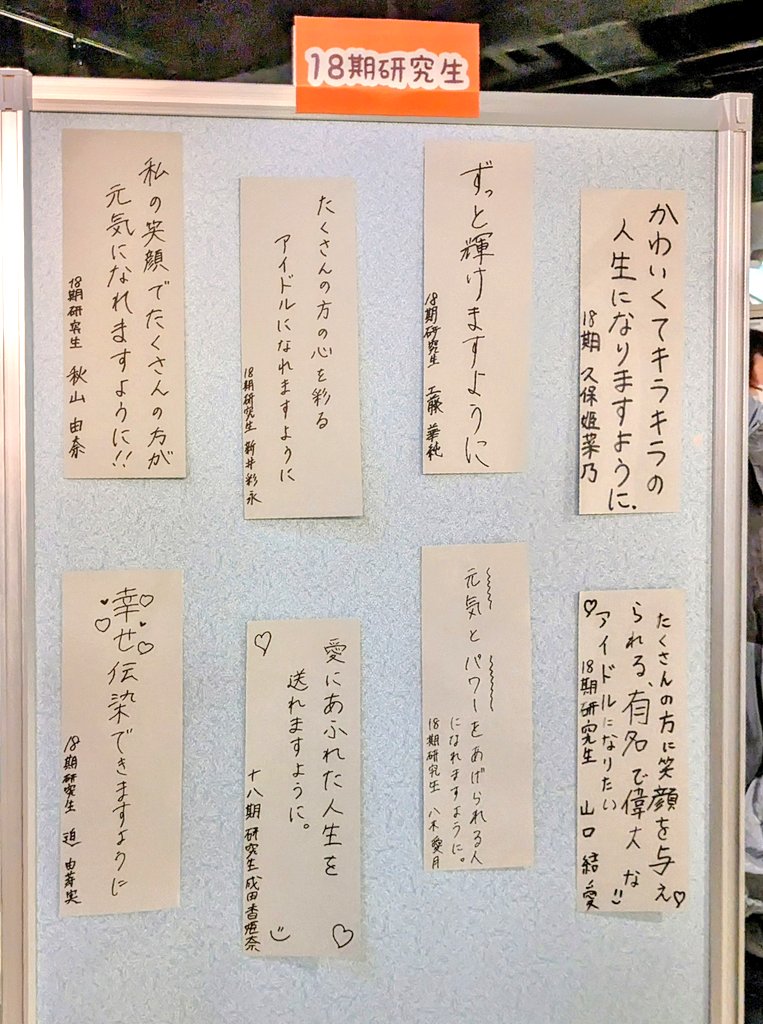 18期研究生
私の笑顔でたくさんの方が
元気になれますように!!
18期研究生 秋山 由奈
たくさんの方の心を彩る
アイドルになれますように
18期研究生 新井彩永
ずっと輝けますように
18期研究生 工藤 華純
かわいくてキラキラの
人生になりますように.
18期 久保姫菜乃
幸せ伝染できますように
18期研究生 迫 由芽実
愛にあふれた人生を
送れますように。
十八期研究生成田香姫奈
元気とパワーをあげられる人
になれますように。
18期研究生 八木愛月
たくさんの方に笑顔を与え
られる、有名で偉大な
アイドルになりたい
18期研究生 山口 結愛